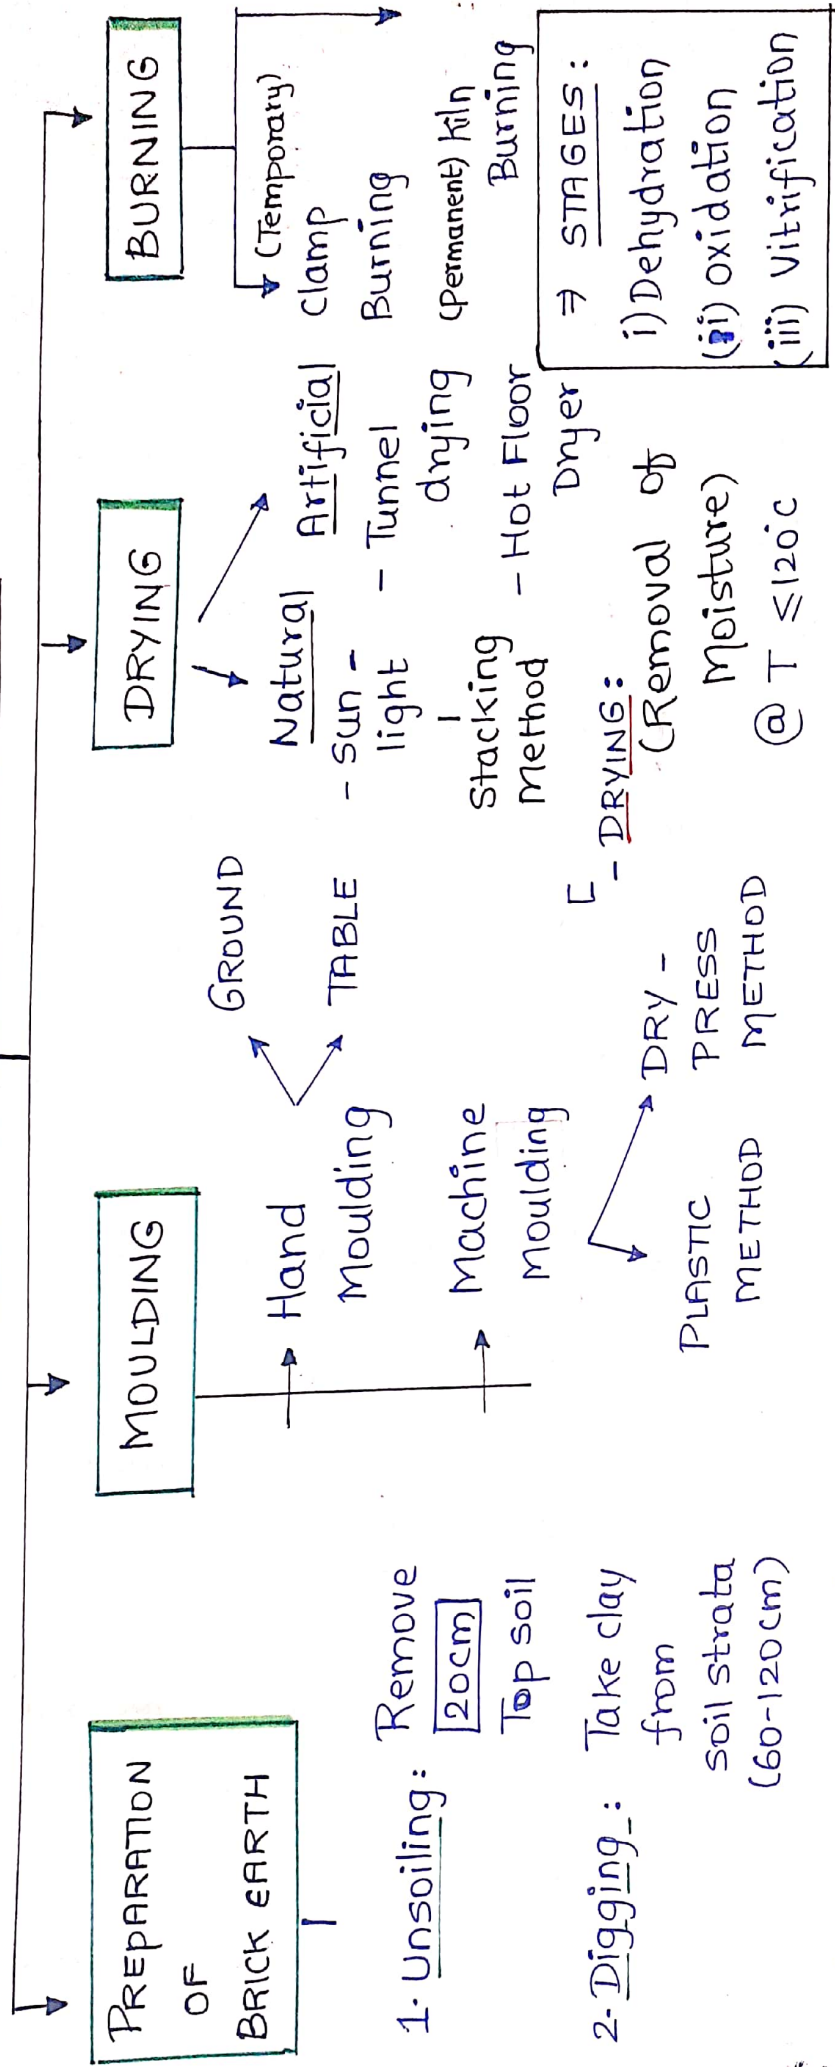 PREPARATION
OF
BRICK EARTH
1- Unsoiling: Remove
20cm
Top soil
2- Digging: Take clay
from
soil strata
(60-120cm)
MOULDING
Hand
Moulding
GROUND
TABLE
Machine
Moulding
PLASTIC
METHOD
DRY-
PRESS
METHOD
DRYING
Natural
- Sun-
light
Stacking
Method
Artificial
- Tunnel
drying
- Hot Floor
Dryer
- DRYING:
(Removal of
Moisture)
@ T ≤120°C
BURNING
(Temporary)
Clamp
Burning
(Permanent) Kiln
Burning
⇒ STAGES:
i) Dehydration
(ii) oxidation
(iii) Vitrification